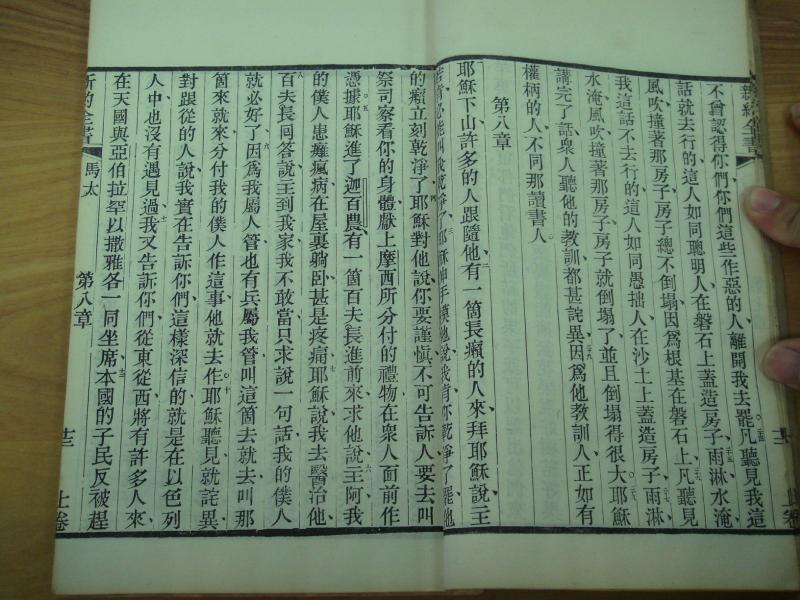 新約全書
不曾認得你們你們這些作惡的人離開我去罷凡聽見我這
話就去行的這人如同聰明人在磐石上蓋造房子雨淋水淹
風吹撞著那房子房子總不倒塌因爲根基在磐石上凡聽見
我這話不去行的這人如同愚拙人在沙土上蓋造房子雨淋
水淹風吹撞著那房子房子就倒塌了並且倒塌得很大耶穌
講完了話衆人聽他的教訓都甚詫異因爲他教訓人正如有
權柄的人不同那讀書人
第八章
耶穌下山許多的人跟隨他有一箇長癩的人來拜耶穌說主
若肯必能叫我乾淨了耶穌伸手摸他說我肯你乾淨了罷他
的癩立刻乾淨了耶穌對他說你要謹慎不可告訴人要去叫
祭司察看你的身體獻上摩西所分付的禮物在衆人面前作
憑據耶穌進了迦百農有一箇百夫長進前來求他說主阿我
的僕人患癱瘋病在屋裏躺臥甚是疼痛耶穌說我去醫治他
百夫長囘答說主到我家我不敢當只求說一句話我的僕人
就必好了因爲我屬人管也有兵屬我管叫這箇去就去叫那
箇來就來分付我的僕人作這事他就去作耶穌聽見就詫異
對跟從的人說我實在告訴你們這樣深信的就是在以色列
人中也沒有遇見過我又告訴你們從東從西將有許多人來
在天國與亞伯拉罕以撒雅各一同坐席本國的子民反被趕
新約全書 馬太 第八章 十三 上卷